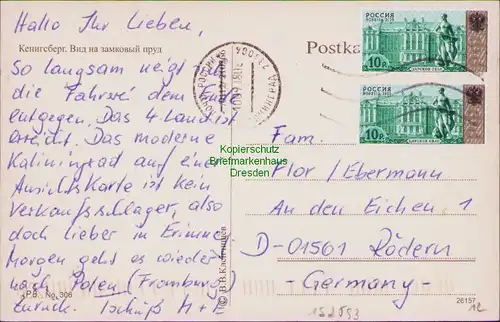 Hallo Ihr Lieben,
Кенигсберг. Вид на замковый пруд
So langsam neigt
die dem
entgegen. Das 4. Land ist
erreicht. Das moderne
Kaliningrad auf einer
Ansichtskarte ist kein
Verkaufsschlager, also
doch lieber in
Morgen geht es wieder
nach Polen (Fromburg)
zurück. Tschüß H+E
Р.В. No. 306
© В.В.
Postka
РОССИЯ
ROSSIJA 2003
10р
РОССИЯ
ROSSIJA 2003
10р
ПОЧТА РОССИИ
Kopierschutz
Briefmarkenhaus
Dresden
Fam.
Flor / Ebermann
An den Eichen 1
D-01561 Rödern
- Germany -
26157
152593
12